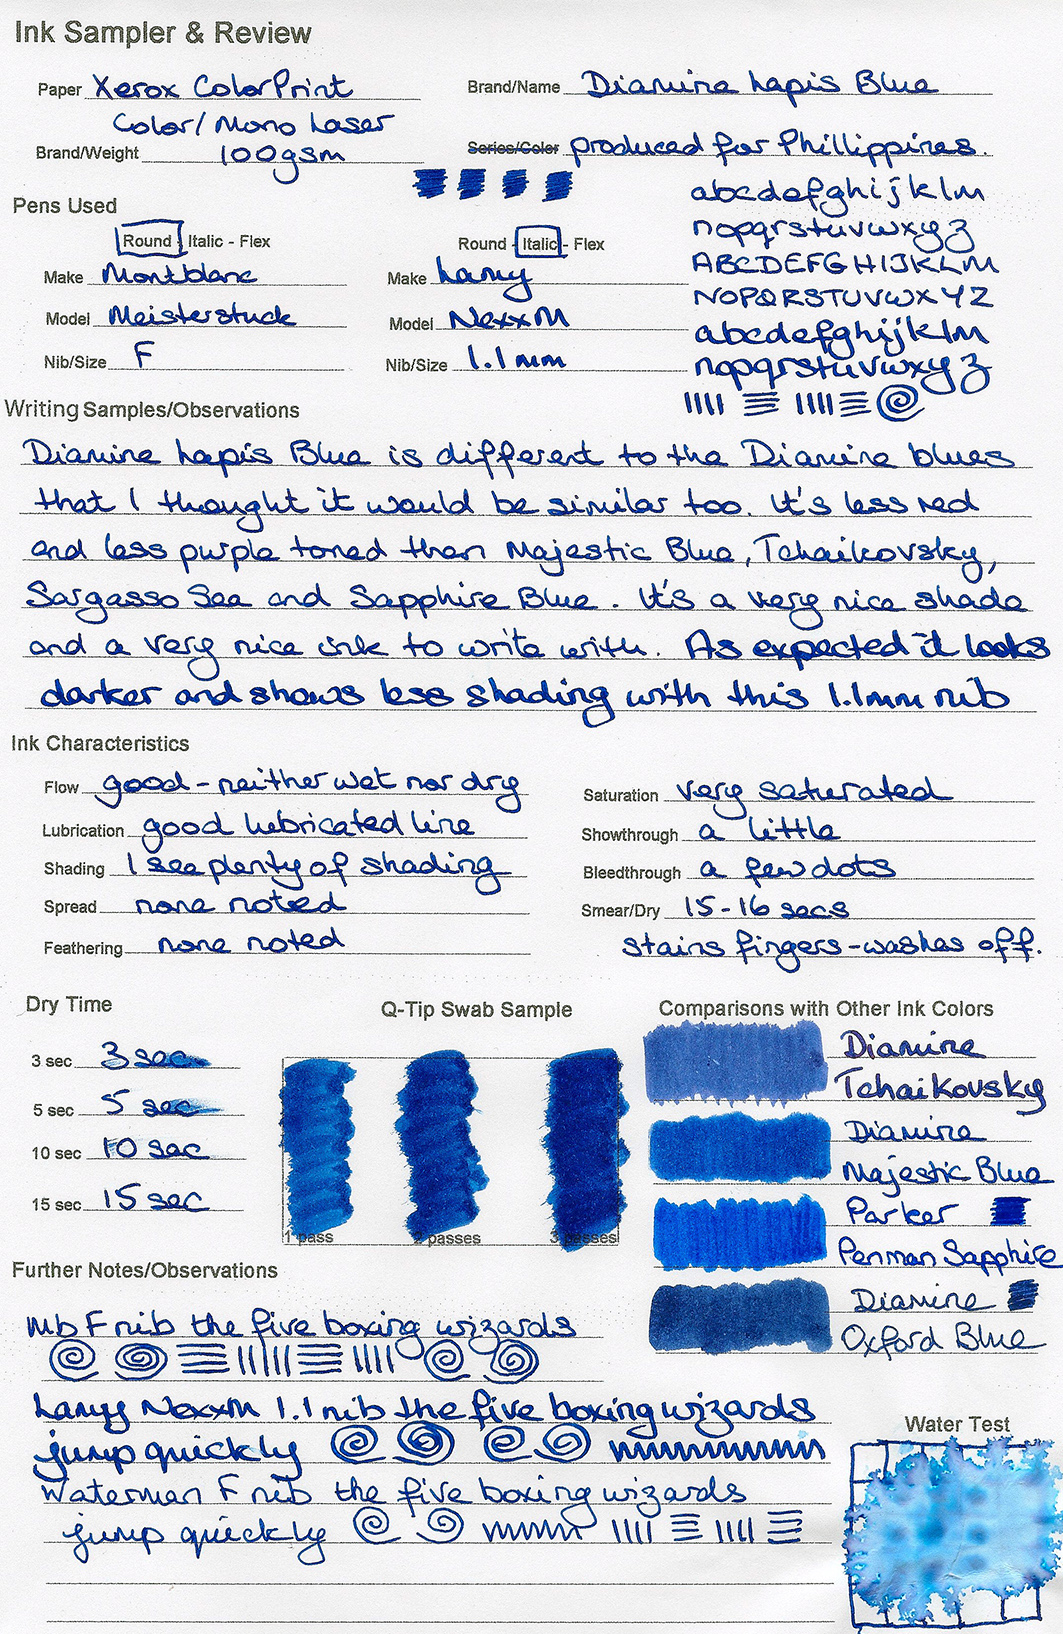 Ink Sampler & Review
Paper Xerox ColorPrint
Color/Mono Laser
Brand/Weight 100gsm
Brand/Name Diamine Lapis Blue
Series/Color produced for Phillippines.
abcdefghijklm
nopqrstuvwxyz
ABCDEFGHIJKLM
NOPQRSTUVWXYZ
abcdefghijklm
nopqrstuvwxyz
Pens Used
Round - Italic - Flex
Make Montblanc
Model Meisterstuck
Nib/Size F
Round - Italic - Flex
Make Lamy
Model Nexx M
Nib/Size 1.1mm
Writing Samples/Observations
Diamine Lapis Blue is different to the Diamine blues
that I thought it would be similar too. It's less red
and less purple toned than Majestic Blue, Tchaikovsky,
Sargasso Sea and Sapphire Blue. It's a very nice shade
and a very nice ink to write with. As expected it looks
darker and shows less shading with this 1.1mm nib
Ink Characteristics
Flow good - neither wet nor dry
Lubrication good lubricated line
Shading I see plenty of shading
Spread none noted
Feathering none noted
Saturation very saturated
Showthrough a little
Bleedthrough a few dots
Smear/Dry 15-16 secs
stains fingers - washes off.
Dry Time
3 sec 3 sec
5 sec 5 sec
10 sec 10 sec
15 sec 15 sec
Q-Tip Swab Sample
1 pass 2 passes 3 passes
Comparisons with Other Ink Colors
Diamine
Tchaikovsky
Diamine
Majestic Blue
Parker
Penman Sapphire
Diamine
Oxford Blue
Further Notes/Observations
Mb F nib the five boxing wizards
Lamy Nexx M 1.1 nib the five boxing wizards
jump quickly
Waterman F nib the five boxing wizards
jump quickly
Water Test